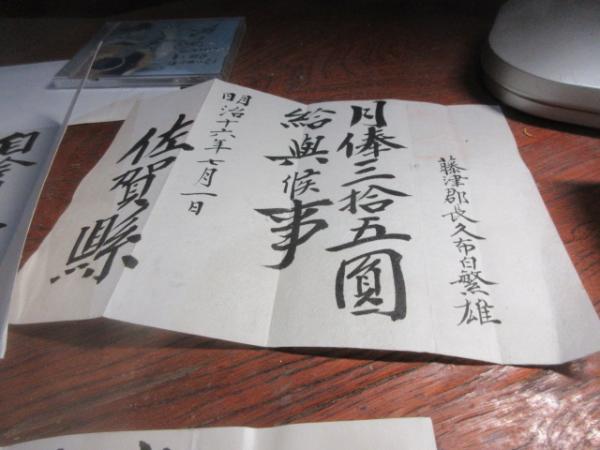 藤津郡長久布白繁雄
月俸三拾五圓
給與候事
明治十六年七月一日
佐賀縣